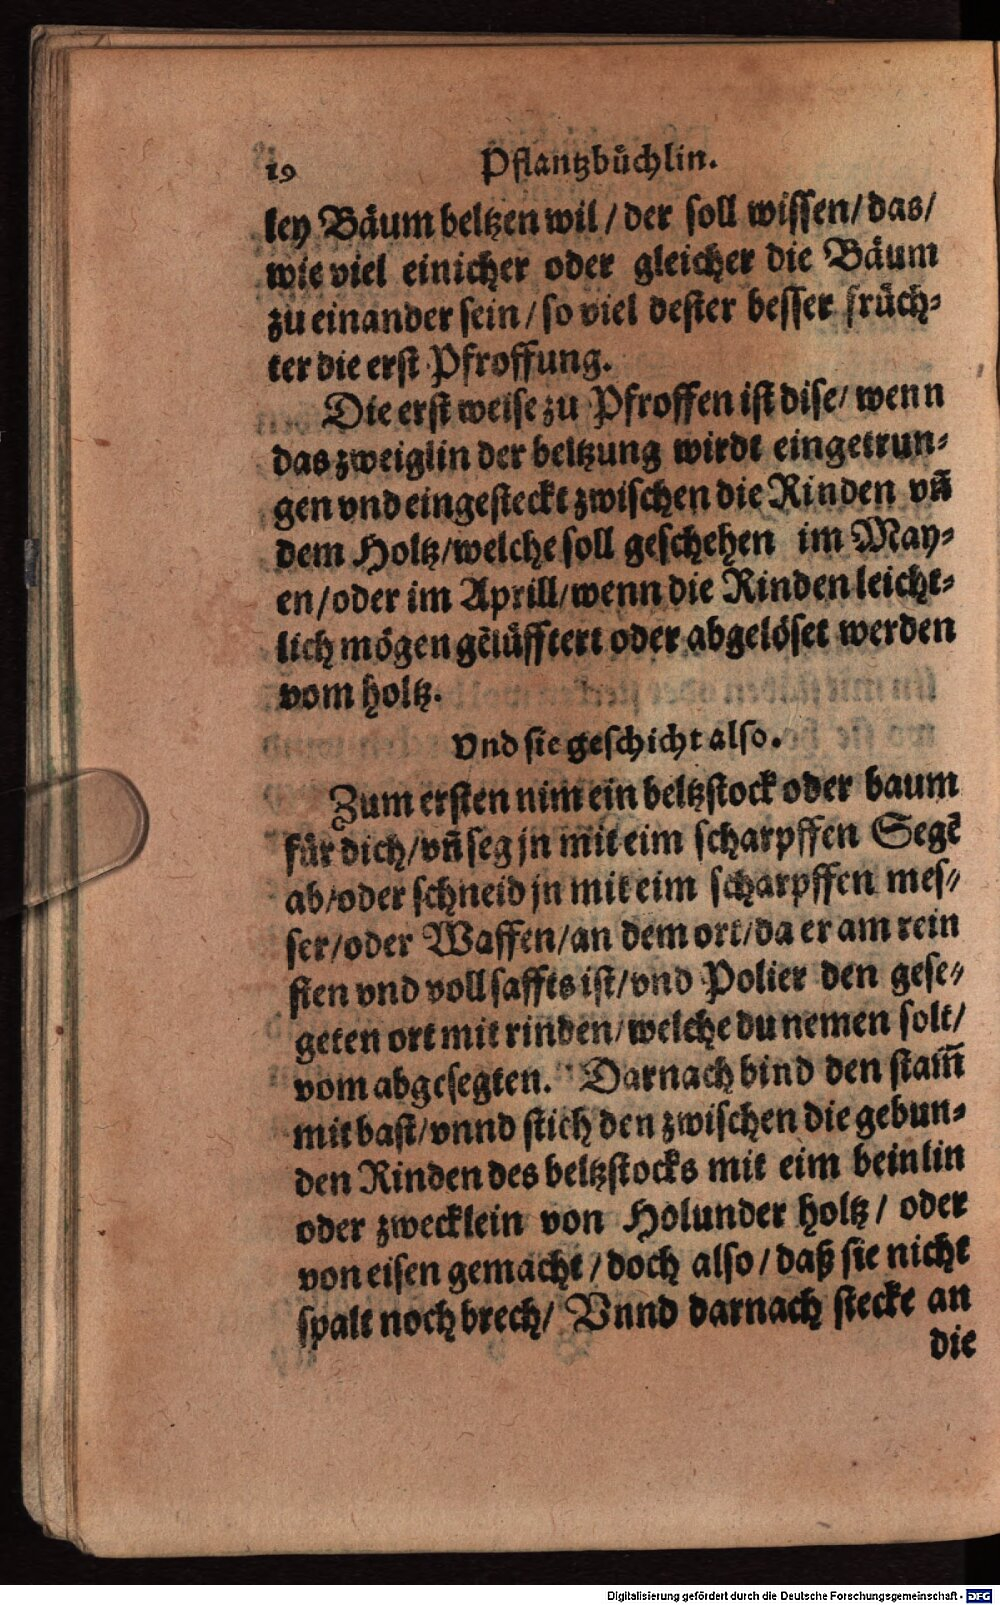 19 Pflantzbüchlin.
ley Bäum beltzen wil / der soll wissen / das /
wie viel einicher oder gleicher die Bäum
zu einander sein / so viel dester besser früch-
ter die erst Pfroffung.
Die erst weise zu Pfroffen ist dise / wenn
das zweiglin der beltzung wirdt eingetrun-
gen vnd eingesteckt zwischen die Rinden vñ
dem Holtz / welche soll geschehen im May-
en / oder im Aprill / wenn die Rinden leicht-
lich mögen gelüfftert oder abgelöset werden
vom holtz.
Vnd sie geschicht also.
Zum ersten nim ein beltzstock oder baum
für dich / vñ seg jn mit eim scharpffen Segẽ
ab / oder schneid jn mit eim scharpffen mes-
ser / oder Waffen / an dem ort / da er am rein
sten vnd voll saffts ist / vnd Polier den gese-
geten ort mit rinden / welche du nemen solt /
vom abgesegten. Darnach bind den stam̃
mit bast / vnnd stich den zwischen die gebun-
den Rinden des beltzstocks mit eim beinlin
oder zwecklein von Holunder holtz / oder
von eisen gemacht / doch also / daß sie nicht
spalt noch brech / Vnnd darnach steckt an
die
Digitalisierung gefördert durch die Deutsche Forschungsgemeinschaft - DFG